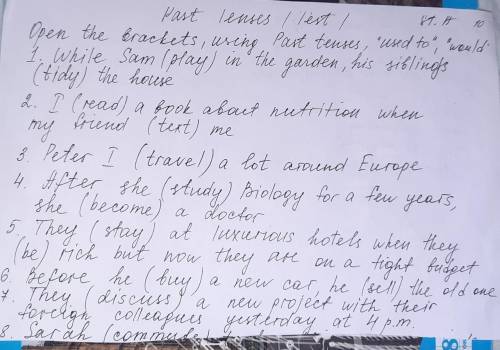 Past Tenses / Test /
Open the brackets, using Past tenses, "used to", "would"
1. While Sam (play) in the garden, his siblings
(tidy) the house
2. I (read) a book about nutrition when
my friend (text) me
3. Peter I (travel) a lot around Europe
4. After she (study) Biology for a few years,
she (become) a doctor
5. They (stay) at luxurious hotels when they
(be) rich but now they are on a tight budget
6. Before he (buy) a new car, he (sell) the old one
7. They (discuss) a new project with their
foreign colleagues yesterday at 4 p.m.
8. Sarah (commute)